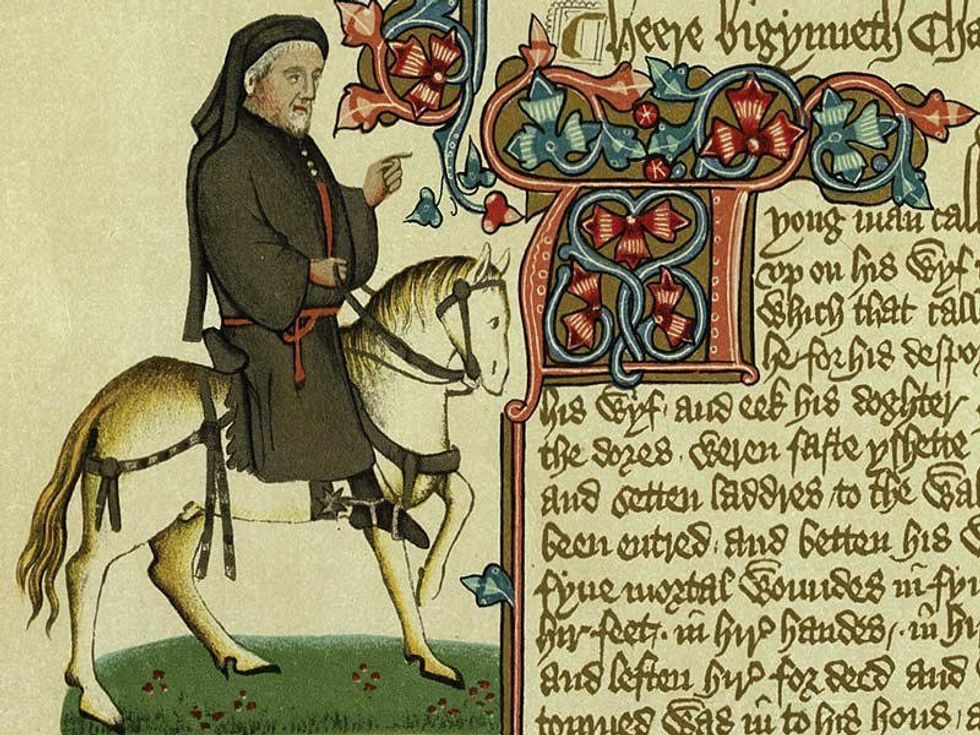 Heere bigynneth Cha
A yong man call
vp on his wyf
Which that call
he for his despo
his wyf / and eek his doghter
the dores . weren faste yshette
and setten laddres / to the Wa
been entred / and betten his
fyue mortal woundes in fy
hir feet / in hir handes / in hi
and leften hir for deed and
torned was in to his hous /